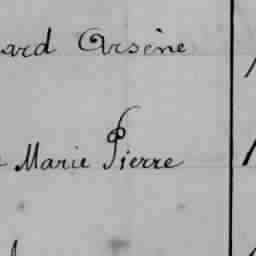 ard Arsène
Marie Pierre